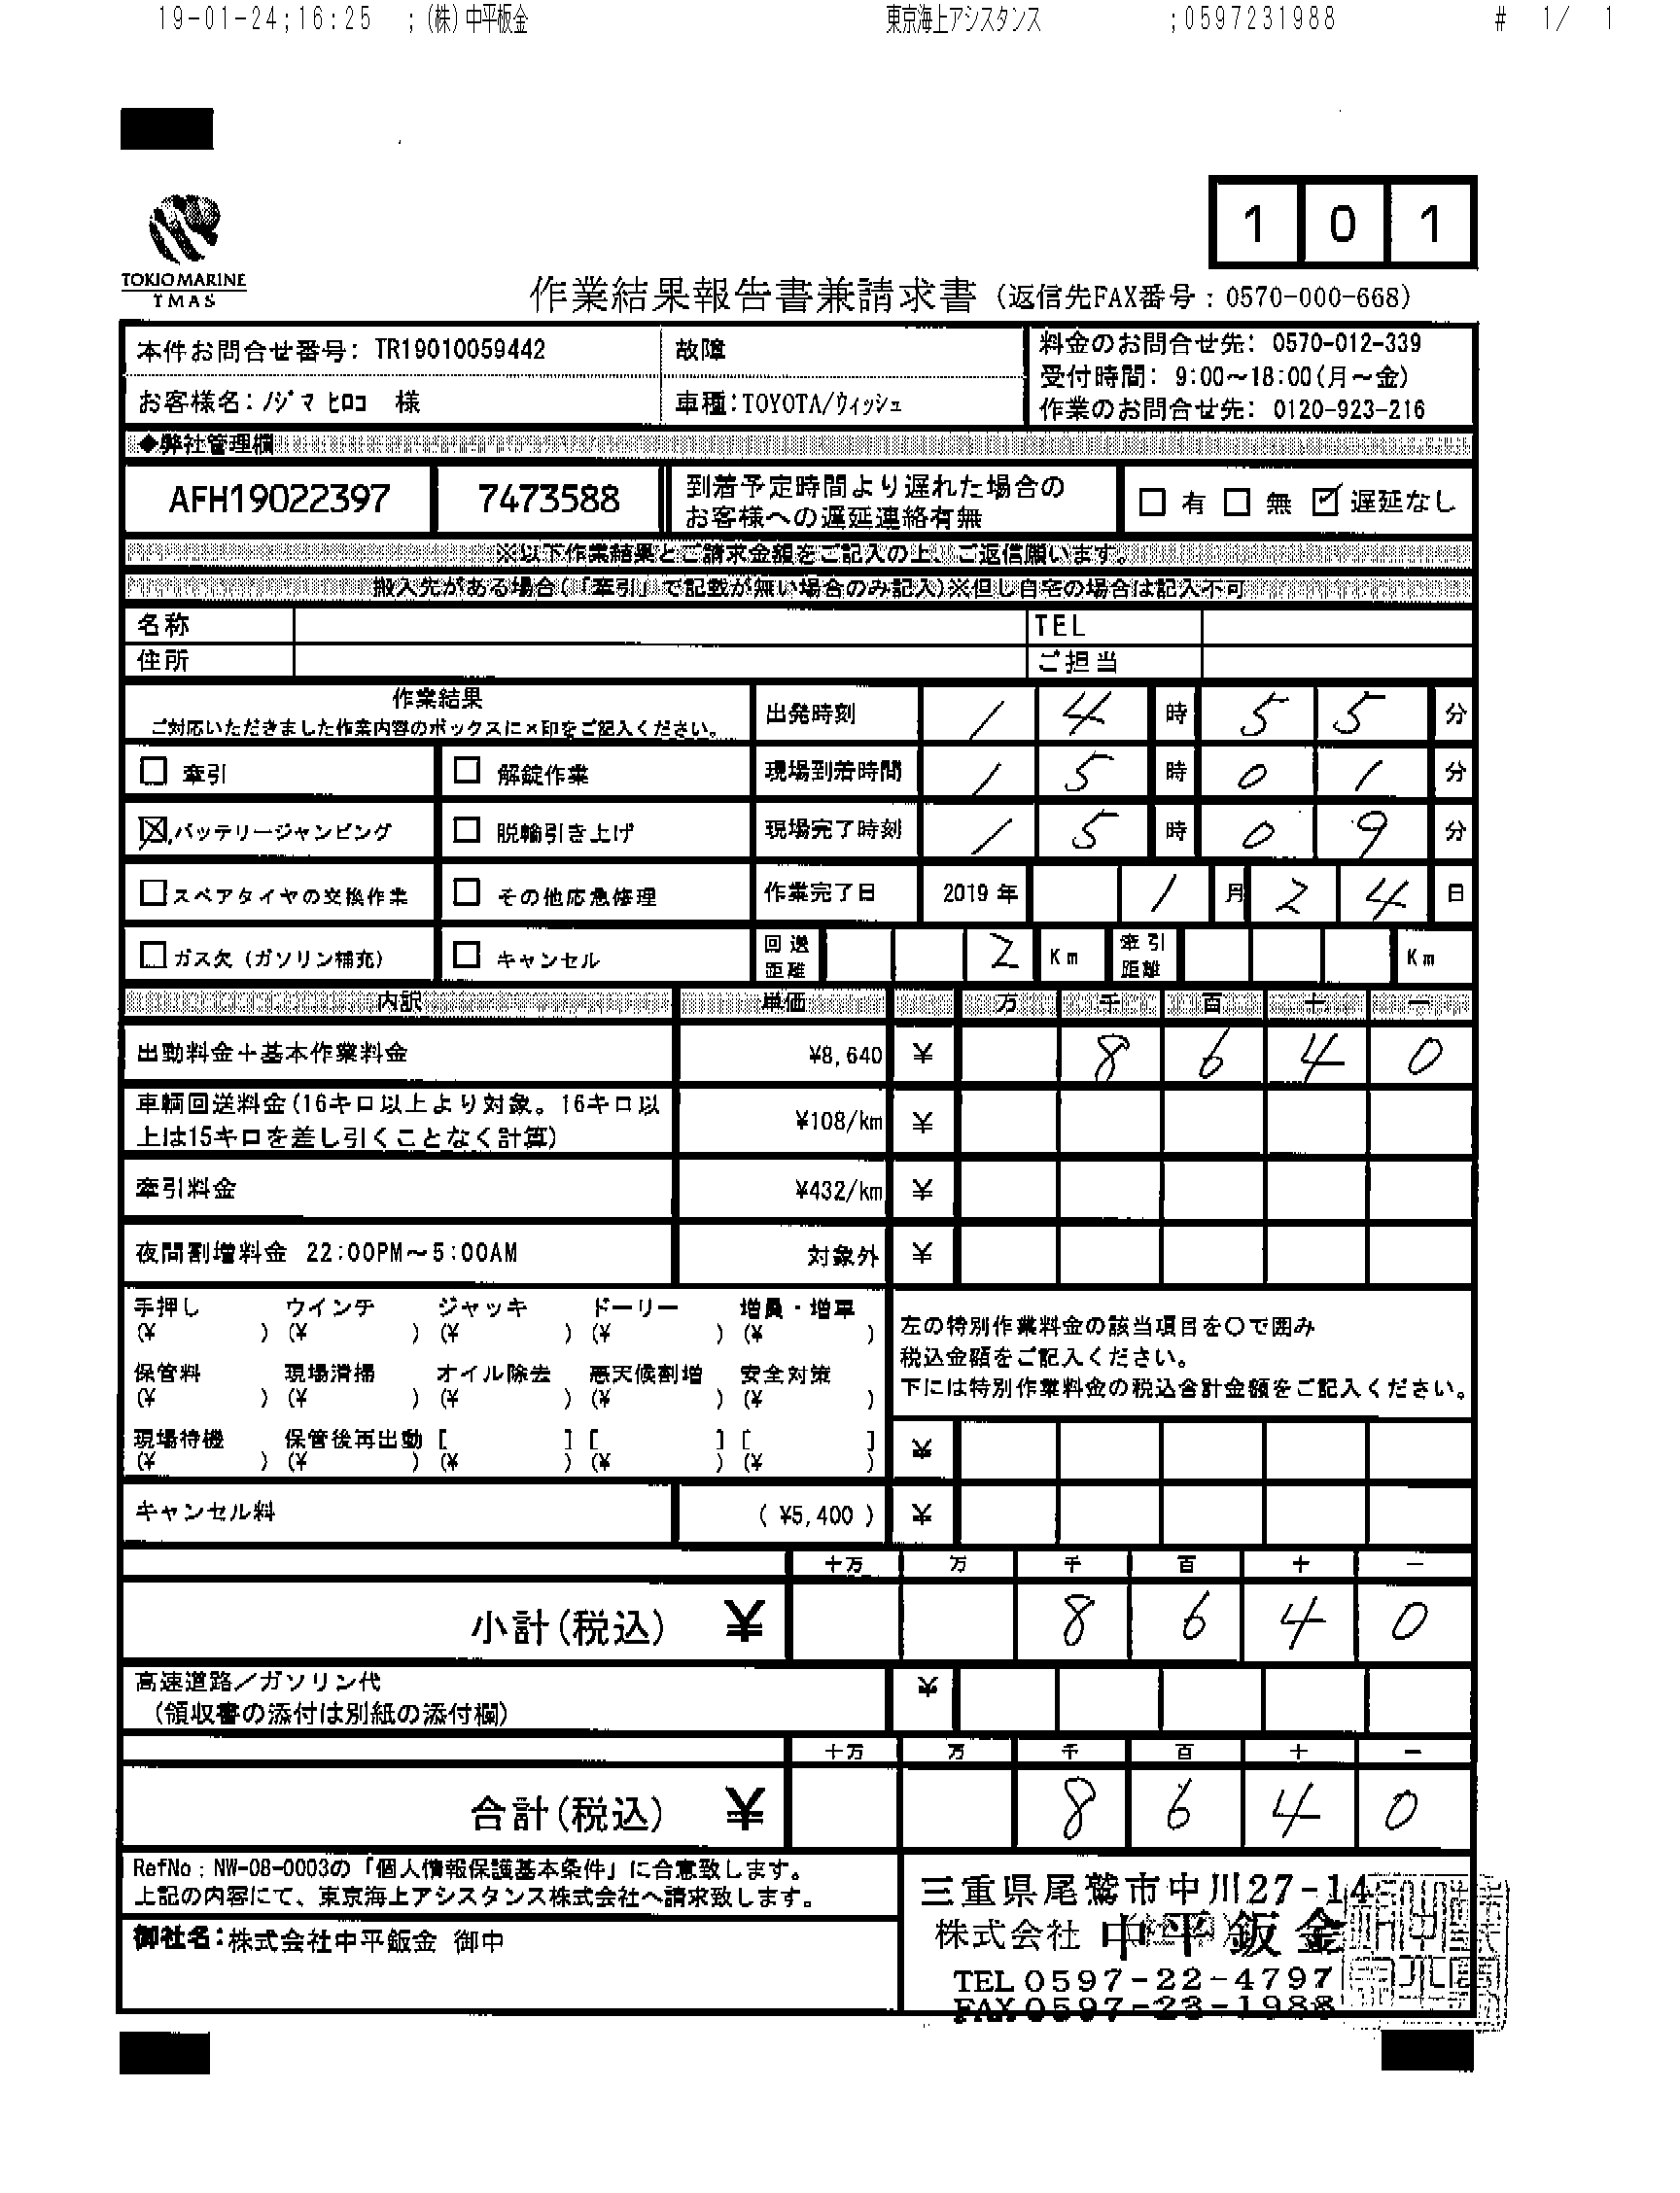 19-01-24;16:25 ;(株)中平板金 東京海上アシスタンス ;0597231988 # 1/ 1
1 0 1
TOKIO MARINE
TMAS
作業結果報告書兼請求書 (返信先FAX番号:0570-000-668)
本件お問合せ番号: TR19010059442 故障
料金のお問合せ先: 0570-012-339
受付時間: 9:00~18:00(月~金)
お客様名:ノジマ ヒロコ 様 車種:TOYOTA/ウィッシュ
作業のお問合せ先: 0120-923-216
◆弊社管理欄
AFH19022397 7473588 到着予定時間より遅れた場合の
お客様への遅延連絡有無
□ 有 □ 無 ☑ 遅延なし
※以下作業結果とご請求金額をご記入の上、ご返信願います。
搬入先がある場合(「牽引」で記載が無い場合のみ記入)※但し自宅の場合は記入不可
名称 TEL
住所 ご担当
作業結果
ご対応いただきました作業内容のボックスに×印をご記入ください。
出発時刻 1 4 時 5 5 分
□ 牽引 □ 解錠作業 現場到着時間 1 5 時 0 1 分
☒ バッテリージャンピング □ 脱輪引き上げ 現場完了時刻 1 5 時 0 9 分
□ スペアタイヤの交換作業 □ その他応急修理 作業完了日 2019 年 1 月 2 4 日
□ ガス欠 (ガソリン補充) □ キャンセル 回送距離 2 Km 牽引距離 Km
内訳 単価 万 千 百 十 一
出動料金+基本作業料金 ¥8,640 ¥ 8 6 4 0
車輌回送料金(16キロ以上より対象。16キロ以
上は15キロを差し引くことなく計算) ¥108/km ¥
牽引料金 ¥432/km ¥
夜間割増料金 22:00PM~5:00AM 対象外 ¥
手押し ウインチ ジャッキ ドーリー 増員・増車
(¥ ) (¥ ) (¥ ) (¥ ) (¥ )
保管料 現場清掃 オイル除去 悪天候割増 安全対策
(¥ ) (¥ ) (¥ ) (¥ ) (¥ )
現場待機 保管後再出動 [ ] [ ] [ ]
(¥ ) (¥ ) (¥ ) (¥ ) (¥ )
左の特別作業料金の該当項目を〇で囲み
税込金額をご記入ください。
下には特別作業料金の税込合計金額をご記入ください。
¥
キャンセル料 ( ¥5,400 ) ¥
十万 万 千 百 十 一
小計(税込) ¥ 8 6 4 0
高速道路/ガソリン代
(領収書の添付は別紙の添付欄) ¥
十万 万 千 百 十 一
合計(税込) ¥ 8 6 4 0
RefNo:NW-08-0003の「個人情報保護基本条件」に合意致します。
上記の内容にて、東京海上アシスタンス株式会社へ請求致します。
御社名:株式会社中平鈑金 御中
三重県尾鷲市中川27-14
株式会社 中平鈑金
TEL 0597-22-4797
FAX 0597-23-1988